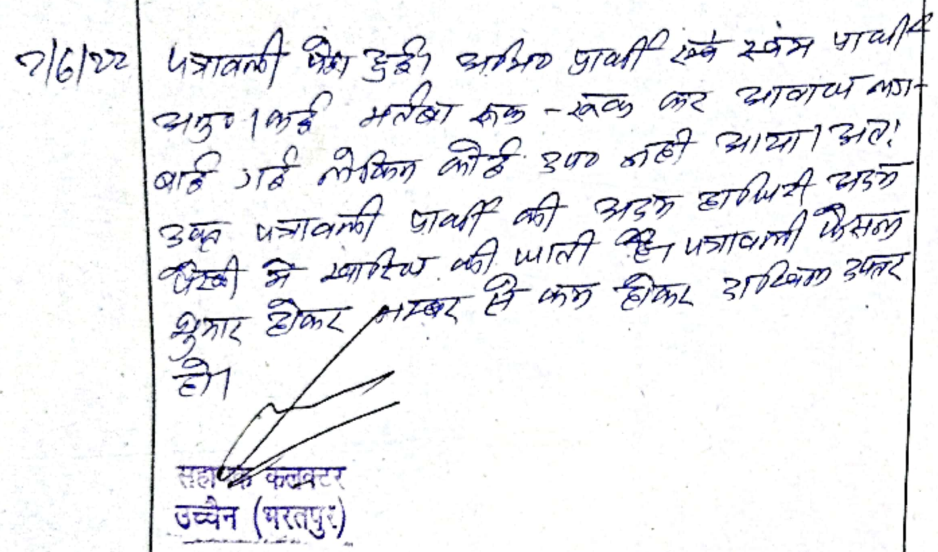 7/6/22 पत्रावली पेश हुई। अभि० प्रार्थी स्वयं प्रार्थी
अनु०। कई मर्तबा रूक-रूक कर आवाज लग-
बाई गई लेकिन कोई उप० नही आया। अतः
उक्त पत्रावली प्रार्थी की अदम हाजिरी अदम
पैरवी मे खारिज की जाती है। पत्रावली फैसल
शुमार होकर नम्बर से कम होकर दाखिल दफ्तर
हो।
सहायक कलक्टर
उच्चैन (भरतपुर)